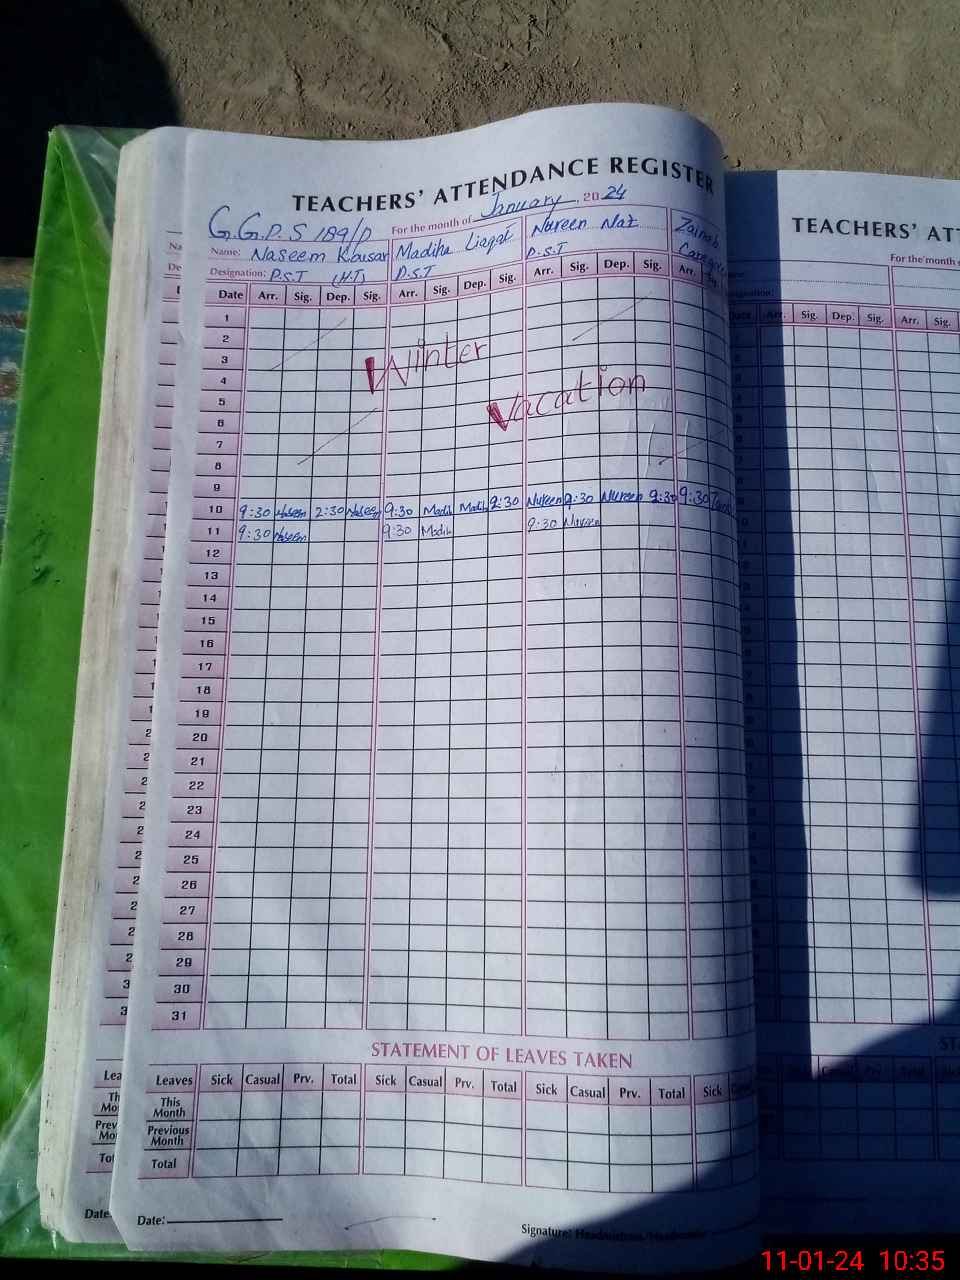 TEACHERS' ATTENDANCE REGISTER
G.G.P.S 189/P For the month of January, 2024
Name: Naseem Kousar Madiha Liaqat Nureen Naz Zainab
Designation: P.S.T (H.T) P.S.T P.S.T
Date Arr. Sig. Dep. Sig. Arr. Sig. Dep. Sig. Arr. Sig. Dep. Sig. Arr.
1
2
3
Winter
4
5
Vacation
6
7
8
9
10 9:30 Naseem 2:30 Naseem 9:30 Madih Madih 2:30 Nureen 9:30 Nureen 2:30 9:30
11 9:30 Naseem 9:30 Madih 9:30 Nureen
12
13
14
15
16
17
18
19
20
21
22
23
24
25
26
27
28
29
30
31
STATEMENT OF LEAVES TAKEN
Leaves Sick Casual Prv. Total Sick Casual Prv. Total Sick Casual Prv. Total Sick
This Month
Previous Month
Total
Date:
Signature:
TEACHERS' ATT
For the month
Date Arr. Sig. Dep. Sig. Arr. Sig.
11-01-24 10:35